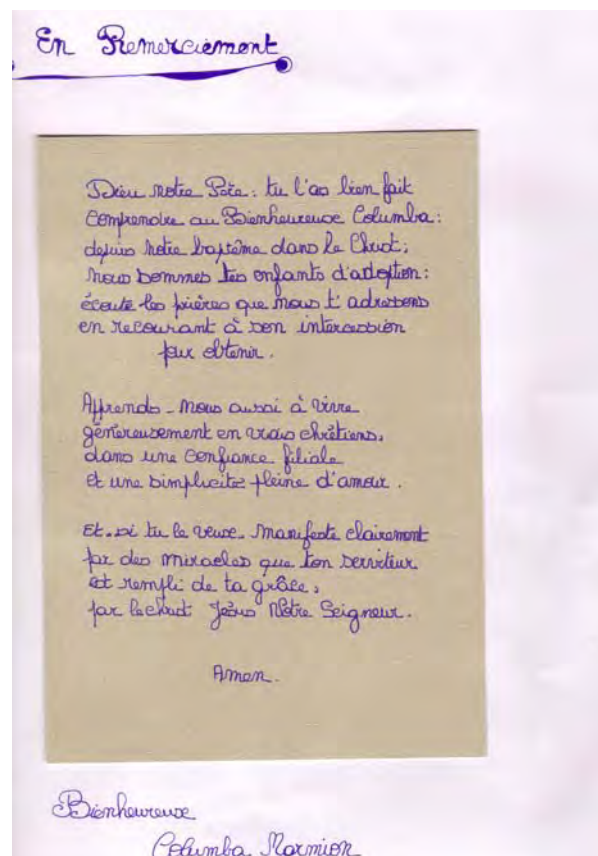 En Remerciement
Dieu notre Père : tu l'as bien fait
comprendre au Bienheureuse Columba :
depuis notre baptême dans le Christ ;
nous sommes tes enfants d'adoption :
écoute les prières que nous t'adressons
en recourant à son intercession
pour obtenir.
Apprends-nous aussi à vivre
généreusement en vrais chrétiens,
dans une confiance filiale
et une simplicitée pleine d'amour.
Et.si tu le veuse. Manifeste clairement
par des miracles que ton serviteur
est rempli de ta grâce,
par le christ Jésus Nôtre Seigneur.
Amen.
Bienheureuse
Columba Marmion